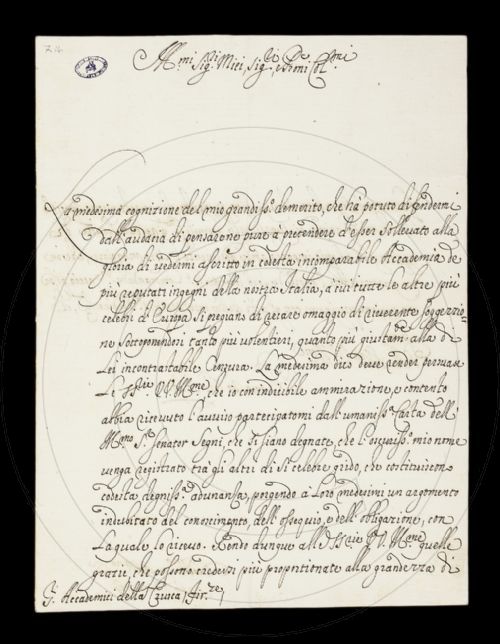 Ill.mi Sig.ri Miei, Sig.ri e P.roni Col.mi
La medesima cognizione del mio grandiss.o demerito, che hà potuto difendermi
dall'audacia di pensare, ne pure a pretendere d'esser sollevato alla
gloria di vedermi ascritto in codesta incomparabile Accademia de
più reputati ingegni della nostra Italia, a cui tutte le altre più
celebri di Europa si pregiano di recare omaggio di riverente soggezzio=
ne sottoponendosi tanto più volentieri, quanto più giustam.te alla di
Lei incontrastabile Censura. La medesima dico deve render persuase
Le SS.rie VV. Ill.me, che io con indicibile ammirazione, e contento
abbia ricevuto l'avviso partecipatomi dall'umaniss.a Carta dell'
Ill.mo S.r Senator Segni, che si siano degnate, che l' mio nome
venga registrato tra gli altri di sì celebre grido, che costituiscono
codesta degniss.a adunanza, porgendo a Loro medesimi un argomento
indubitato del conoscimento, dell'ossequio, e dell'obligazione, con
la quale lo ricevo. Rendo dunque alle SS.rie VV. Ill.me quelle
grazie, che possono credersi più proportionate alla grandezza di
S.i Accademici della Crusca, Fir.ze